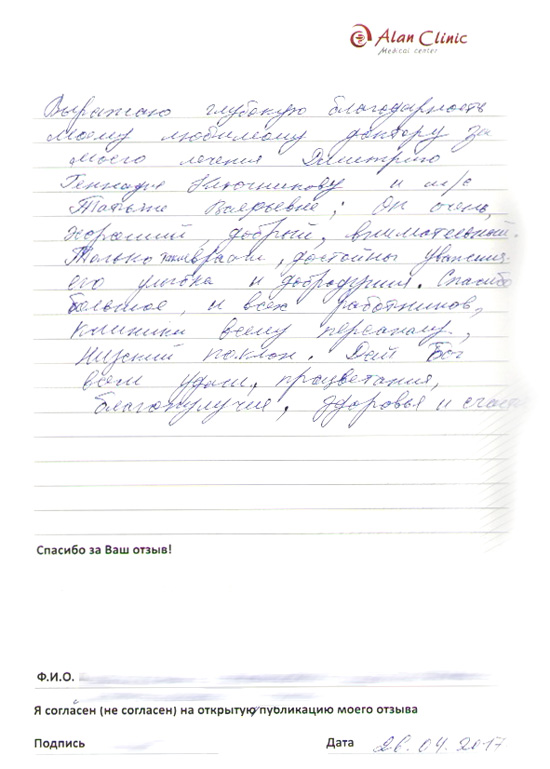 Alan Clinic
Medical center
Выражаю глубокую благодарность
моему любимому доктору за
моего лечения Дмитрию
Геннадие Ключникову и м/с
Татьяне Валерьевне; Он очень,
хороший, добрый, внимательный.
Только таким врачи, достойны уважения.
его улыбка и добродушия. Спасибо
большое, и всех работников,
клиники всему персоналу,
Низский поклон. Дай Бог
всем удачи, процветания,
благополучия, здоровья и счаст
Спасибо за Ваш отзыв!
Ф.И.О.
Я согласен (не согласен) на открытую публикацию моего отзыва
Подпись Дата 26.04.2017